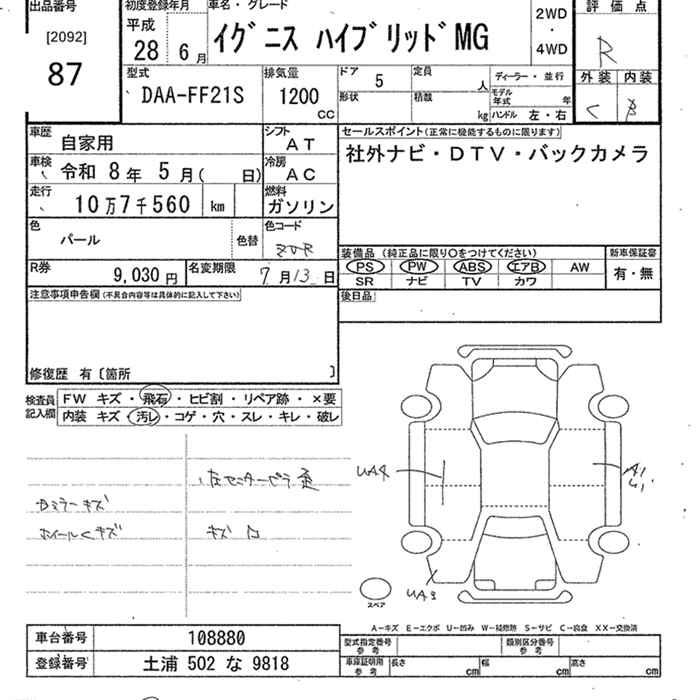 出品番号
[2092]
87
初度登録年月
平成
28年6月
車名・グレード
イグニス ハイブリッドMG
2WD
・
4WD
評価点
R
外装 内装
C B
型式
DAA-FF21S
排気量
1200
CC
ドア 5
定員 人
形状
積数 kg
ディーラー・並行
モデル年式 年
ハンドル 左・右
車歴
自家用
シフト
AT
車検
令和 8年 5月( 日)
冷房
AC
走行
10万7千560 km
燃料
ガソリン
色
パール
色替
色コード
ZVR
R券
9,030円
名変期限
7月13日
セールスポイント(正常に機能するものに限ります)
社外ナビ・DTV・バックカメラ
装備品(純正品に限り○をつけてください)
PS PW ABS エアB AW
SR ナビ TV カワ
新車保証書
有・無
後日品
注意事項申告欄(不具合内容等は具体的に記入して下さい)
修復歴 有〔箇所 〕
検査員
記入欄
FW キズ・飛石・ヒビ割・リペア跡・×要
内装 キズ・汚レ・コゲ・穴・スレ・キレ・破レ
左センターピラー
ミラーキズ
ホイールキズ
キズ
UA4
A1
UA3
スペア
A-キズ E-エクボ U-凹み W-補修跡 S-サビ C-腐食 XX-交換済
車台番号
108880
登録番号
土浦 502 な 9818
型式指定番号
参考
類別区分番号
参考
車庫証明用
参考
長さ cm
幅 cm
高さ cm